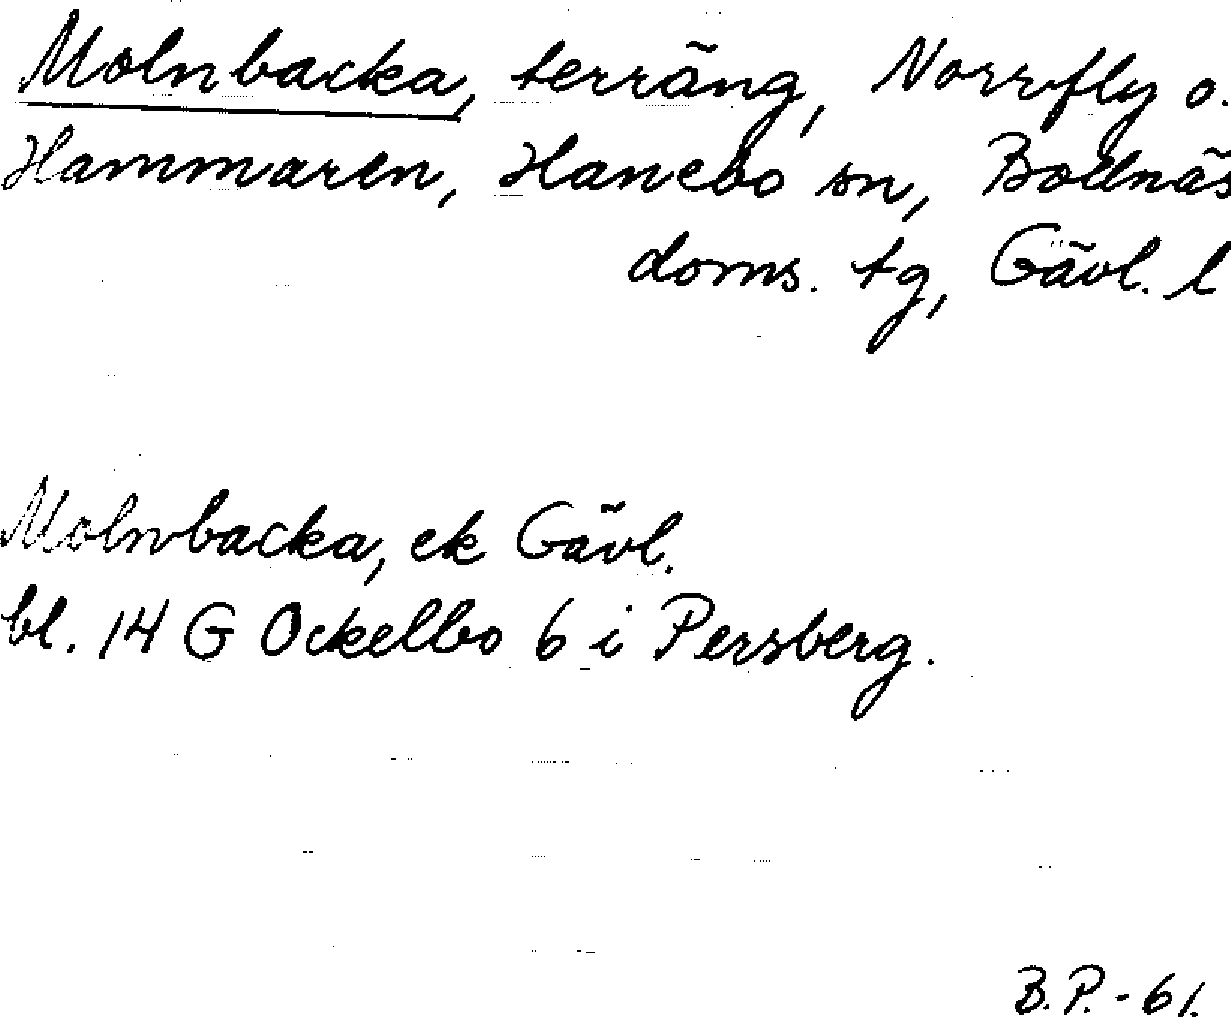 Molnbacka, terräng, Norrfly o.
Hammaren, Hanebo sn, Bollnäs
doms. tg, Gävl. l
Molnbacka, ek Gävl.
bl. 14 G Ockelbo 6 i Persberg.
B.P.-61.